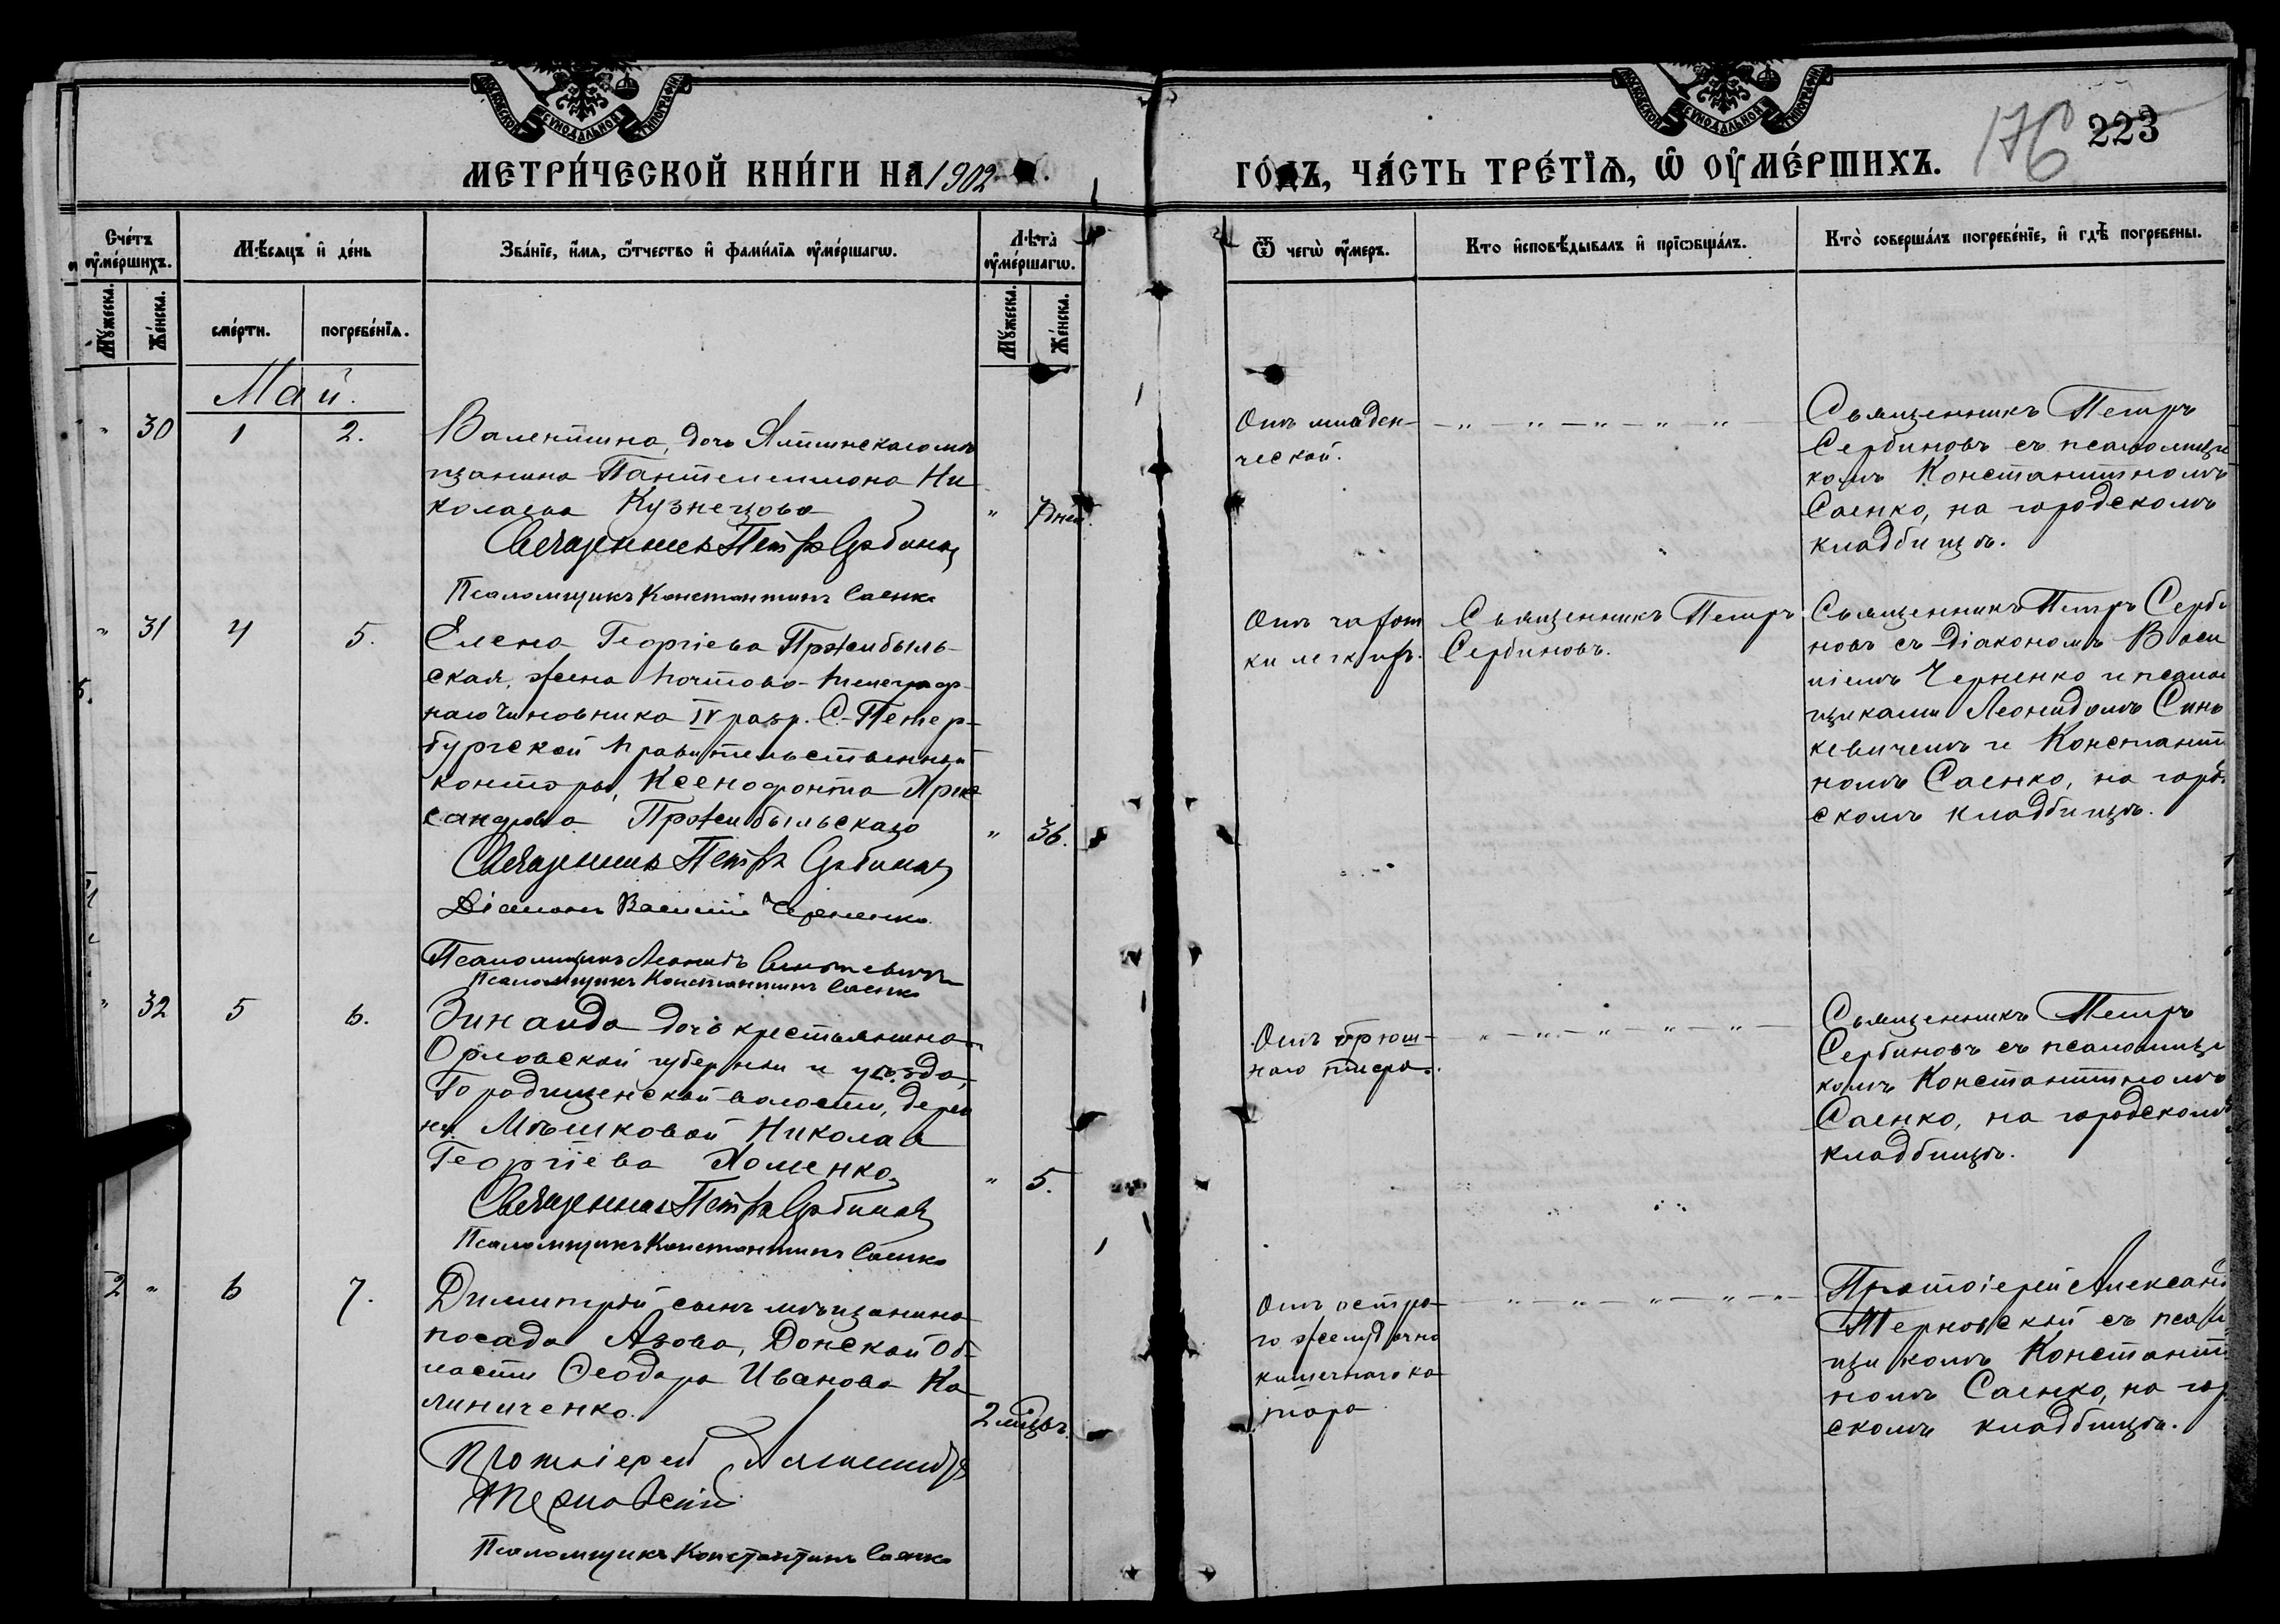 МОСКОВСКОЙ СУНОДАЛЬНОЙ ТИПОГРАФІИ
МОСКОВСКОЙ СУНОДАЛЬНОЙ ТИПОГРАФІИ
МЕТРИ́ЧЕСКОЙ КНИ́ГИ НА 1902
ГО́ДЪ, ЧА́СТЬ ТРЕ́ТЇѦ, Ѡ ОУ҆МЕ́РШИХЪ.
176 223
Сче́тъ оу҆ме́ршихъ.
Мѣ́сяцъ и҆ де́нь
Зва́нїе, и҆́мя, ѻ҆́тчество и҆ фами́лїя оу҆ме́ршагѡ.
Лѣ́та оу҆ме́ршагѡ.
Ѿ чегѡ̀ оу҆́меръ.
Кто и҆сповѣ́дывалъ и҆ прїѡбща́лъ.
Кто̀ соверша́лъ погребе́нїе, и҆ гдѣ̀ погребены.
Му́жеска.
Же́нска.
сме́рти.
погребе́нїя.
Му́жеска.
Же́нска.
Май.
" 30 1 2.
Валентина, дочь Ялтинскаго мѣ
щанина Пантелеимона Ни
колаева Кузнецова " 7 дней.
Священникъ Петръ Сербиновъ
Псаломщикъ Константинъ Саенко
Отъ младен-
ческой.
Священникъ Петръ
Сербиновъ съ псаломщи
комъ Константиномъ
Саенко, на городскомъ
кладбищѣ.
" 31 4 5.
Елена Георгіева Пржибыль-
ская, жена почтово-телеграф-
наго чиновника IV разр. С.-Петер-
бургской правительственной
конторы, Ксенофонта Алек
сандрова Пржибыльскаго " 36.
Священникъ Петръ Сербиновъ
Діаконъ Василій Черненко.
Псаломщикъ Леонидъ Синькевичъ
Псаломщикъ Константинъ Саенко
Отъ чахот
ки легкихъ.
Священникъ Петръ
Сербиновъ.
Священникъ Петръ Серби
новъ съ діакономъ Васи
ліемъ Черненко и псалом
щиками Леонидомъ Синь
кевичемъ и Константи
номъ Саенко, на город
скомъ кладбищѣ.
" 32 5 6.
Зинаида дочь крестьянина
Орловской губерніи и уѣзда,
Городищенской волости, дерев
ни Мѣшковой Николая
Георгіева Хоменко " 5.
Священникъ Петръ Сербиновъ
Псаломщикъ Константинъ Саенко
Отъ брюш-
наго тифа.
Священникъ Петръ
Сербиновъ съ псаломщи
комъ Константиномъ
Саенко, на городскомъ
кладбищѣ.
2 " 6 7.
Димитрій сынъ мѣщанина
посада Азова, Донской об-
ласти Ѳеодора Иванова Ка
линиченко. 2 мѣсц.
Протоіерей Александръ
Терновскій
Псаломщикъ Константинъ Саенко
Отъ остра-
го желудочно
кишечнаго ка
тара
Протоіерей Александ
Терновскій съ псалом
щикомъ Константи
номъ Саенко, на гор
скомъ кладбищѣ.